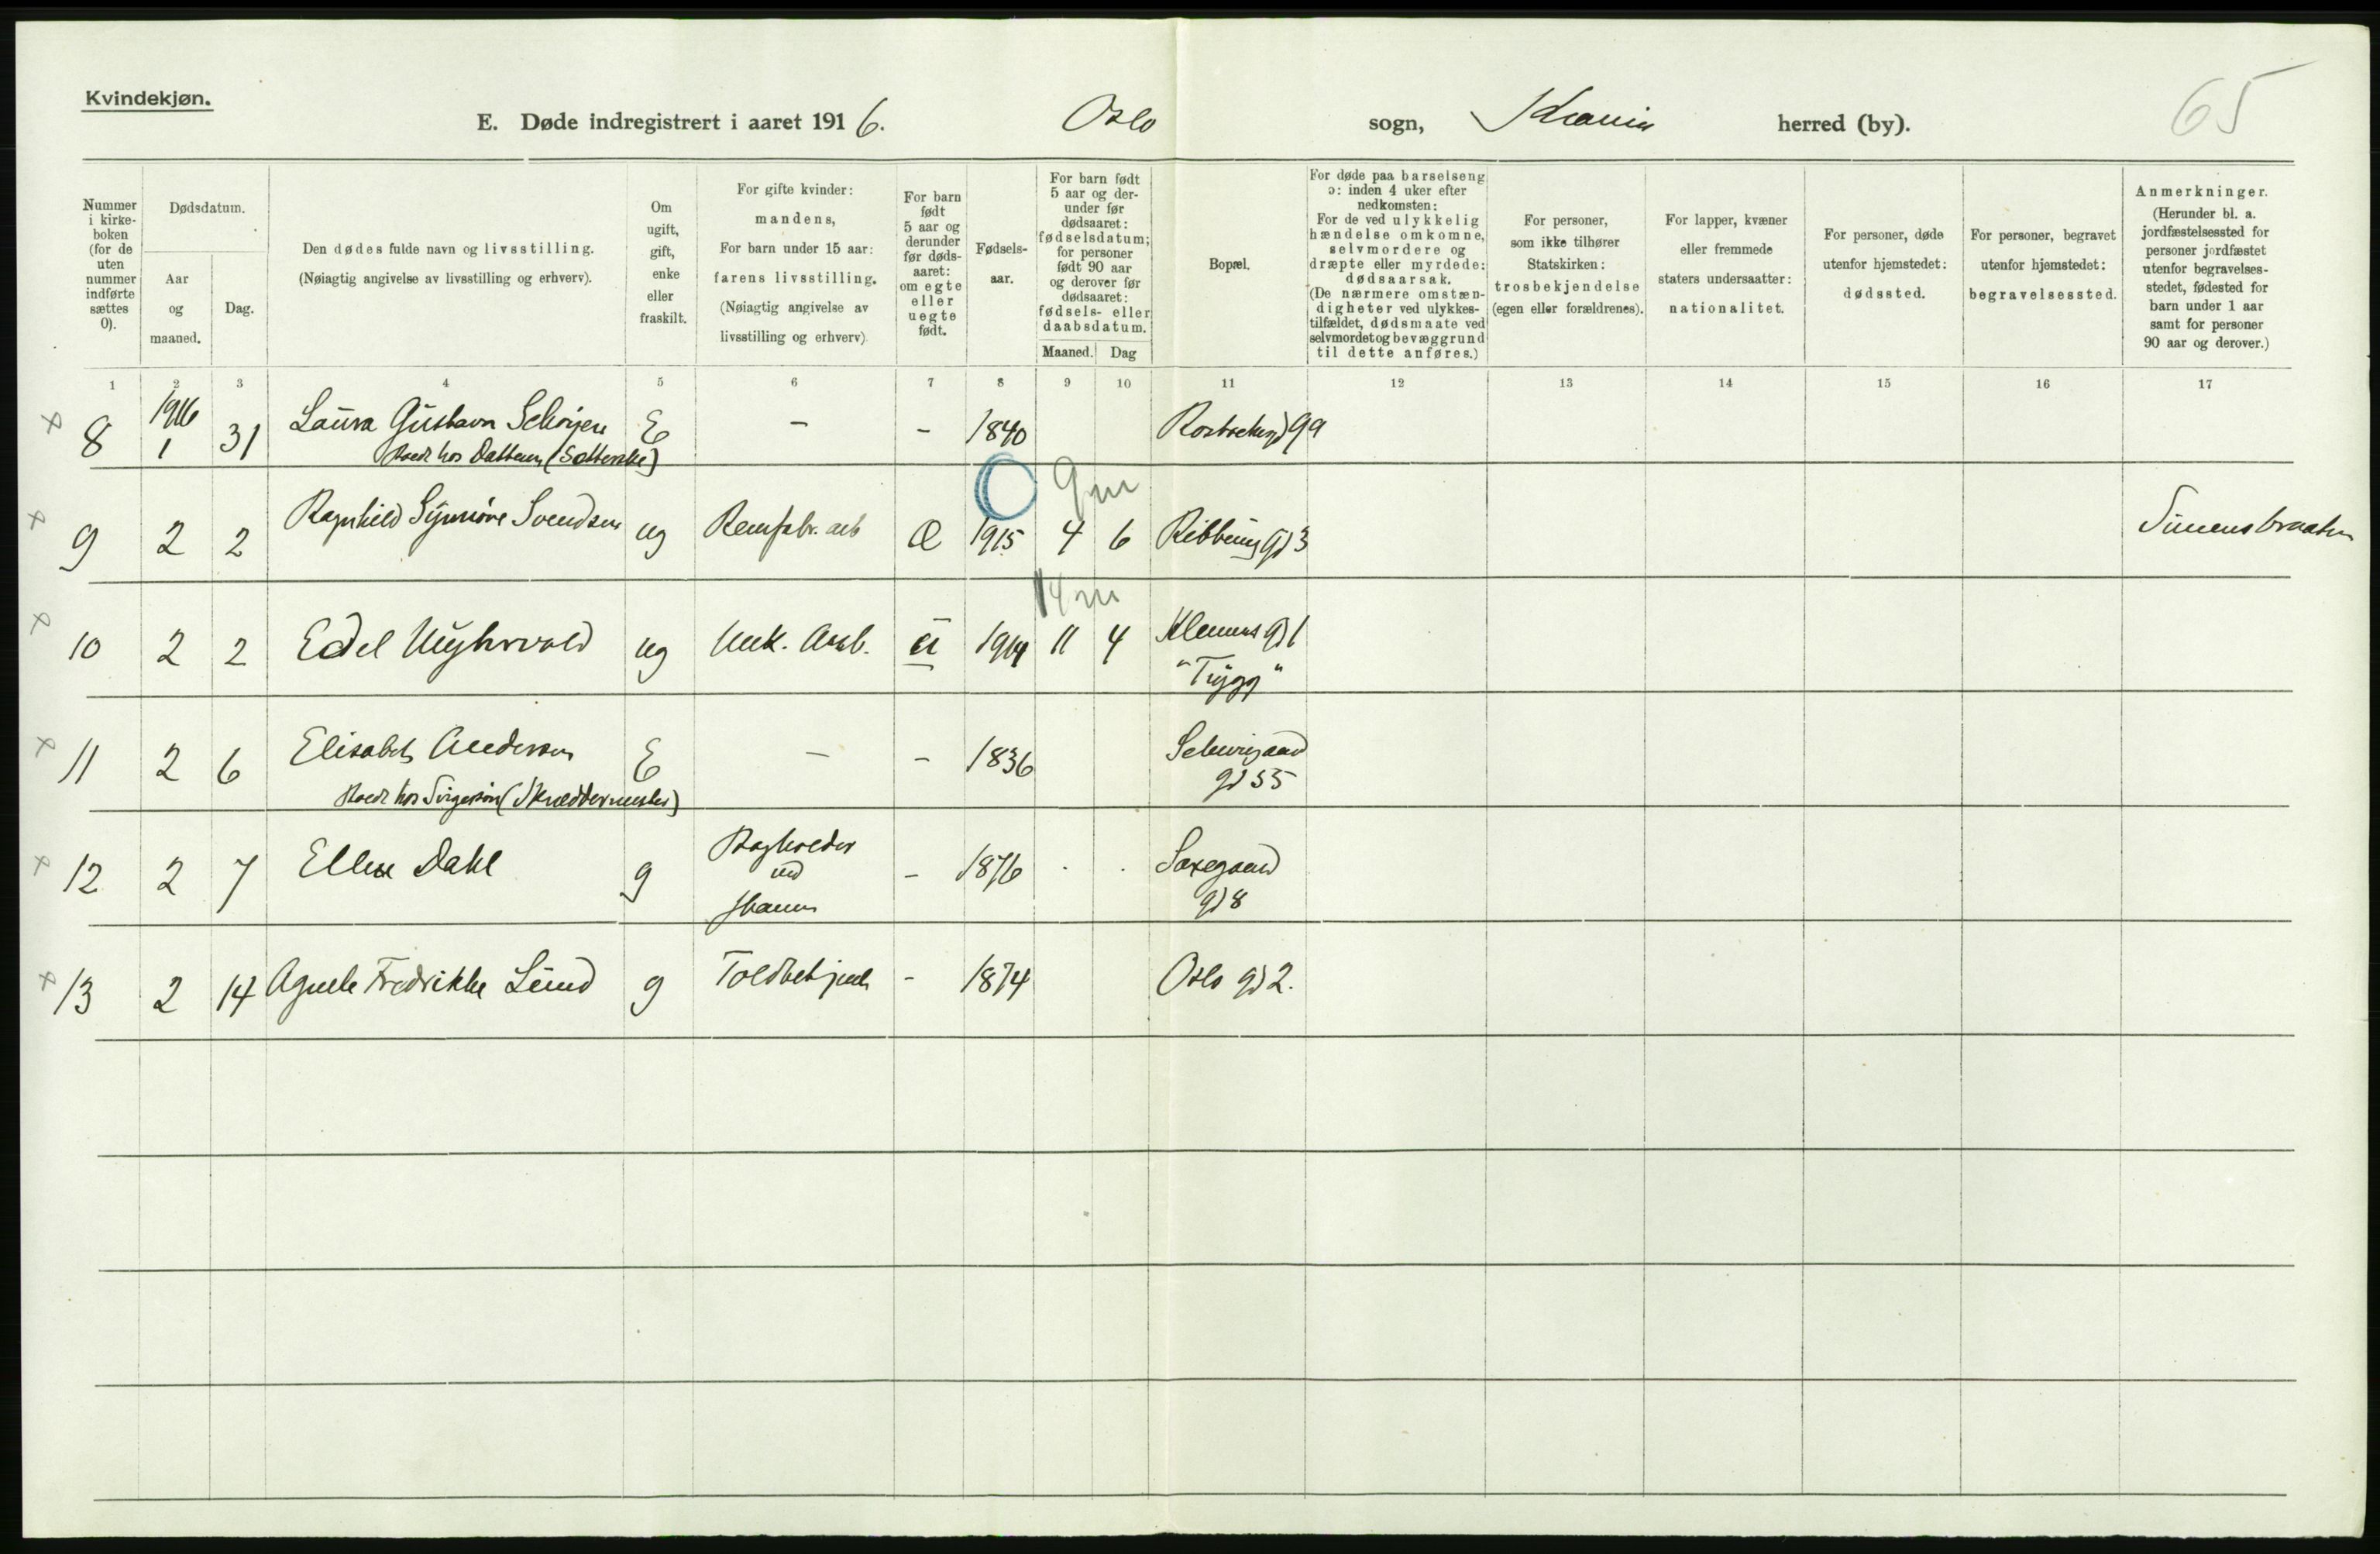 Kvindekjøn.
65
E. Døde indregistrert i aaret 1916. Oslo sogn, Kristiania herred (by).
Nummer i kirke- boken (for de uten nummer indførte sættes 0).
Dødsdatum.
Aar og maaned.
Dag.
Den dødes fulde navn og livsstilling.
(Nøiagtig angivelse av livsstilling og erhverv).
Om ugift, gift, enke eller fraskilt.
For gifte kvinder:
mandens,
For barn under 15 aar:
farens livsstilling.
(Nøiagtig angivelse av
livsstilling og erhverv)
For barn født 5 aar og derunder før døds- aaret: om egte eller uegte født.
Fødsels- aar.
For barn født 5 aar og der- under før dødsaaret: fødselsdatum; for personer født 90 aar og derover før dødsaaret: fødsels- eller daabsdatum.
Maaned.
Dag
Bopæl.
For døde paa barselseng ɔ: inden 4 uker efter nedkomsten: For de ved ulykkelig hændelse omkomne, selvmordere og dræpte eller myrdede: dødsaarsak. (De nærmere omstæn- digheter ved ulykkes- tilfældet, dødsmaate ved selvmordet og bevæggrund til dette anføres.)
For personer, som ikke tilhører Statskirken: trosbekjendelse (egen eller forældrenes).
For lapper, kvæner eller fremmede staters undersaatter: nationalitet.
For personer, døde utenfor hjemstedet: dødssted.
For personer, begravet utenfor hjemstedet: begravelsessted.
Anmerkninger. (Herunder bl. a. jordfæstelsessted for personer jordfæstet utenfor begravelses- stedet, fødested for barn under 1 aar samt for personer 90 aar og derover.)
1 2 3 4 5 6 7 8 9 10 11 12 13 14 15 16 17
1916
8 1 31 Laura Gustava E – – 1840 99
hos Datteren
9m
9 2 2 Ragnhild Synnøve Svendsen ug arb 1915 4 6 Ribbung gd 3 Simensbraaten
14 m
10 2 2 Edel Myhrvold ug u 1914 11 4 Klemens gd 1
"Trygg"
11 2 6 Elisabeth Andersen E – – 1836 Schweigaard
gd 55
hos Svigersøn (Skræddermester)
12 2 7 Ellen Dahl g Bogholder – 1876 Saxegaard
gd 8
13 2 14 Agnete Fredrikke Lund g Toldbetjent – 1874 Oslo gd 2.